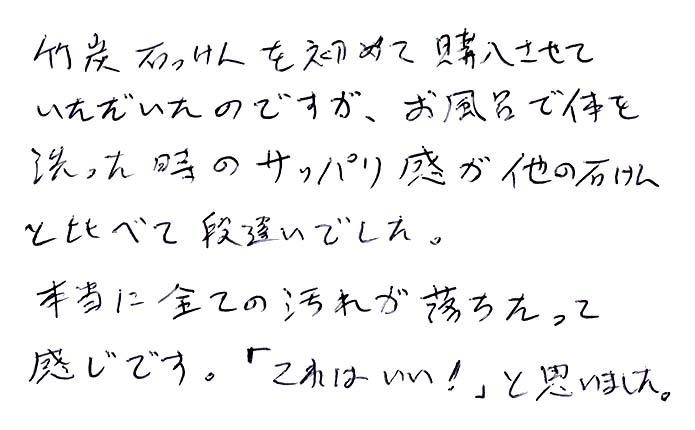 竹炭石っけんを初めて購入させて
いただいたのですが、お風呂で体を
洗った時のサッパリ感が他の石けん
と比べて段違いでした。
本当に全ての汚れが落ちたって
感じです。「これはいい!」と思いました。